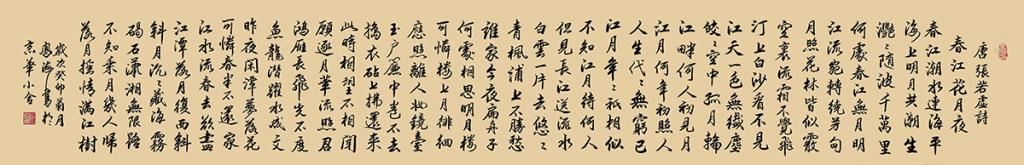 唐張若虛詩
春江花月夜
春江潮水連海平
海上明月共潮生
灩々随波千萬里
何處春江無月明
江流宛轉繞芳甸
月照花林皆似霰
空裏流霜不覺飛
汀上白沙看不見
江天一色無纖塵
皎々空中孤月輪
江畔何人初見月
江月何年初照人
人生代々無窮已
江月年々祇相似
不知江月待何人
但見長江送流水
白雲一片去悠々
青楓浦上不勝愁
誰家今夜扁舟子
何處相思明月樓
可憐樓上月徘徊
應照離人妝鏡臺
玉戶簾中卷不去
擣衣砧上拂還來
此時相望不相聞
願逐月華流照君
鴻雁長飛光不度
魚龍潛躍水成文
昨夜閑潭夢落花
可憐春半不還家
江水流春去欲盡
江潭落月復西斜
斜月沉々藏海霧
碣石瀟湘無限路
不知乘月幾人歸
落月搖情滿江樹
歲次癸卯菊月
慶海書於
京華小舍